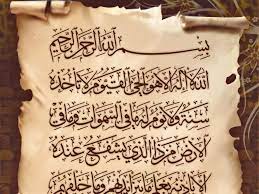 بِسْمِ اللَّهِ الرَّحْمَنِ الرَّحِيمِ
اللَّهُ لَا إِلَهَ إِلَّا هُوَ الْحَيُّ الْقَيُّومُ لَا تَأْخُذُهُ
سِنَةٌ وَلَا نَوْمٌ لَهُ مَا فِي السَّمَوَاتِ وَمَا فِي
الْأَرْضِ مَنْ ذَا الَّذِي يَشْفَعُ عِنْدَهُ
إِلَّا بِإِذْنِهِ يَعْلَمُ مَا بَيْنَ أَيْدِيهِمْ وَمَا خَلْفَهُمْ